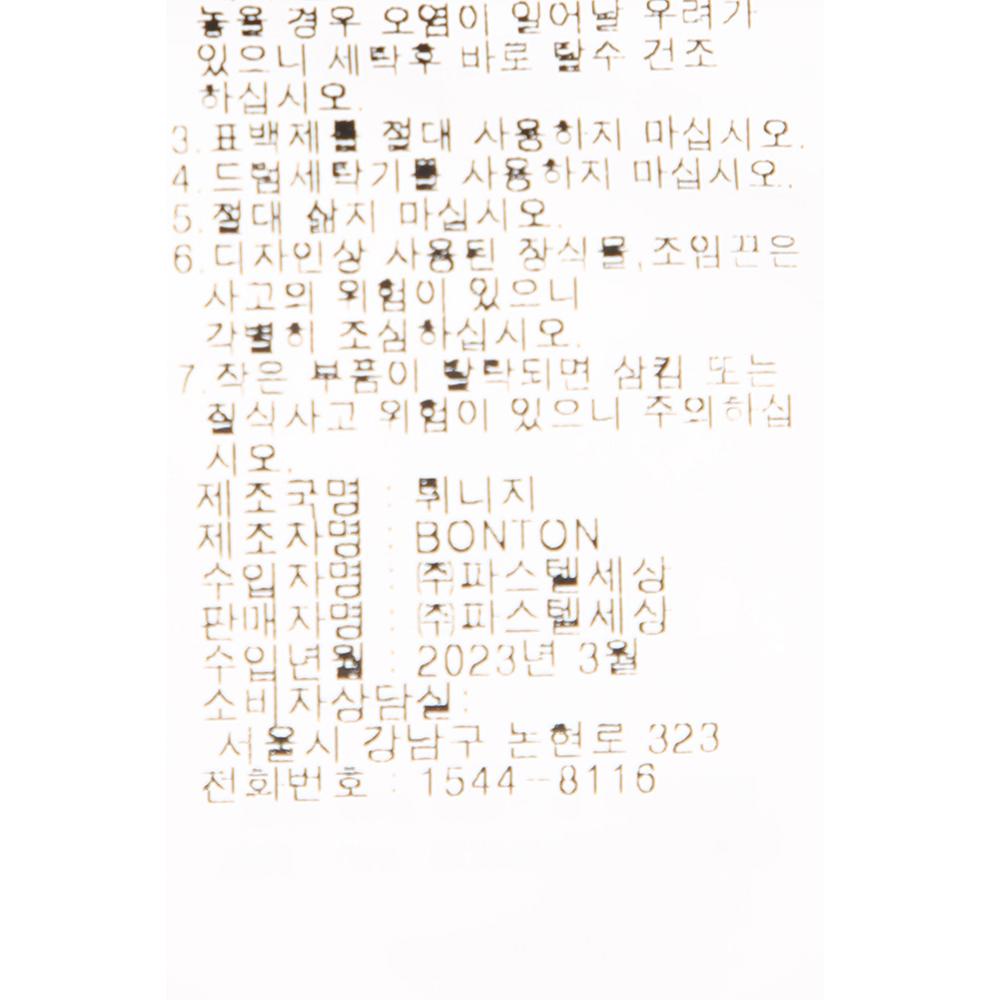 놓을 경우 오염이 일어날 우려가
있으니 세탁후 바로 탈수 건조
하십시오.
3.표백제를 절대 사용하지 마십시오.
4.드럼세탁기를 사용하지 마십시오.
5.절대 삶지 마십시오.
6.디자인상 사용된 장식물,조임끈은
사고의 위험이 있으니
각별히 조심하십시오.
7.작은 부품이 탈락되면 삼킴 또는
질식사고 위험이 있으니 주의하십
시오.
제조국명 : 튀니지
제조자명 : BONTON
수입자명 : ㈜파스텔세상
판매자명 : ㈜파스텔세상
수입년월 : 2023년 3월
소비자상담실:
서울시 강남구 논현로 323
전화번호 : 1544-8116